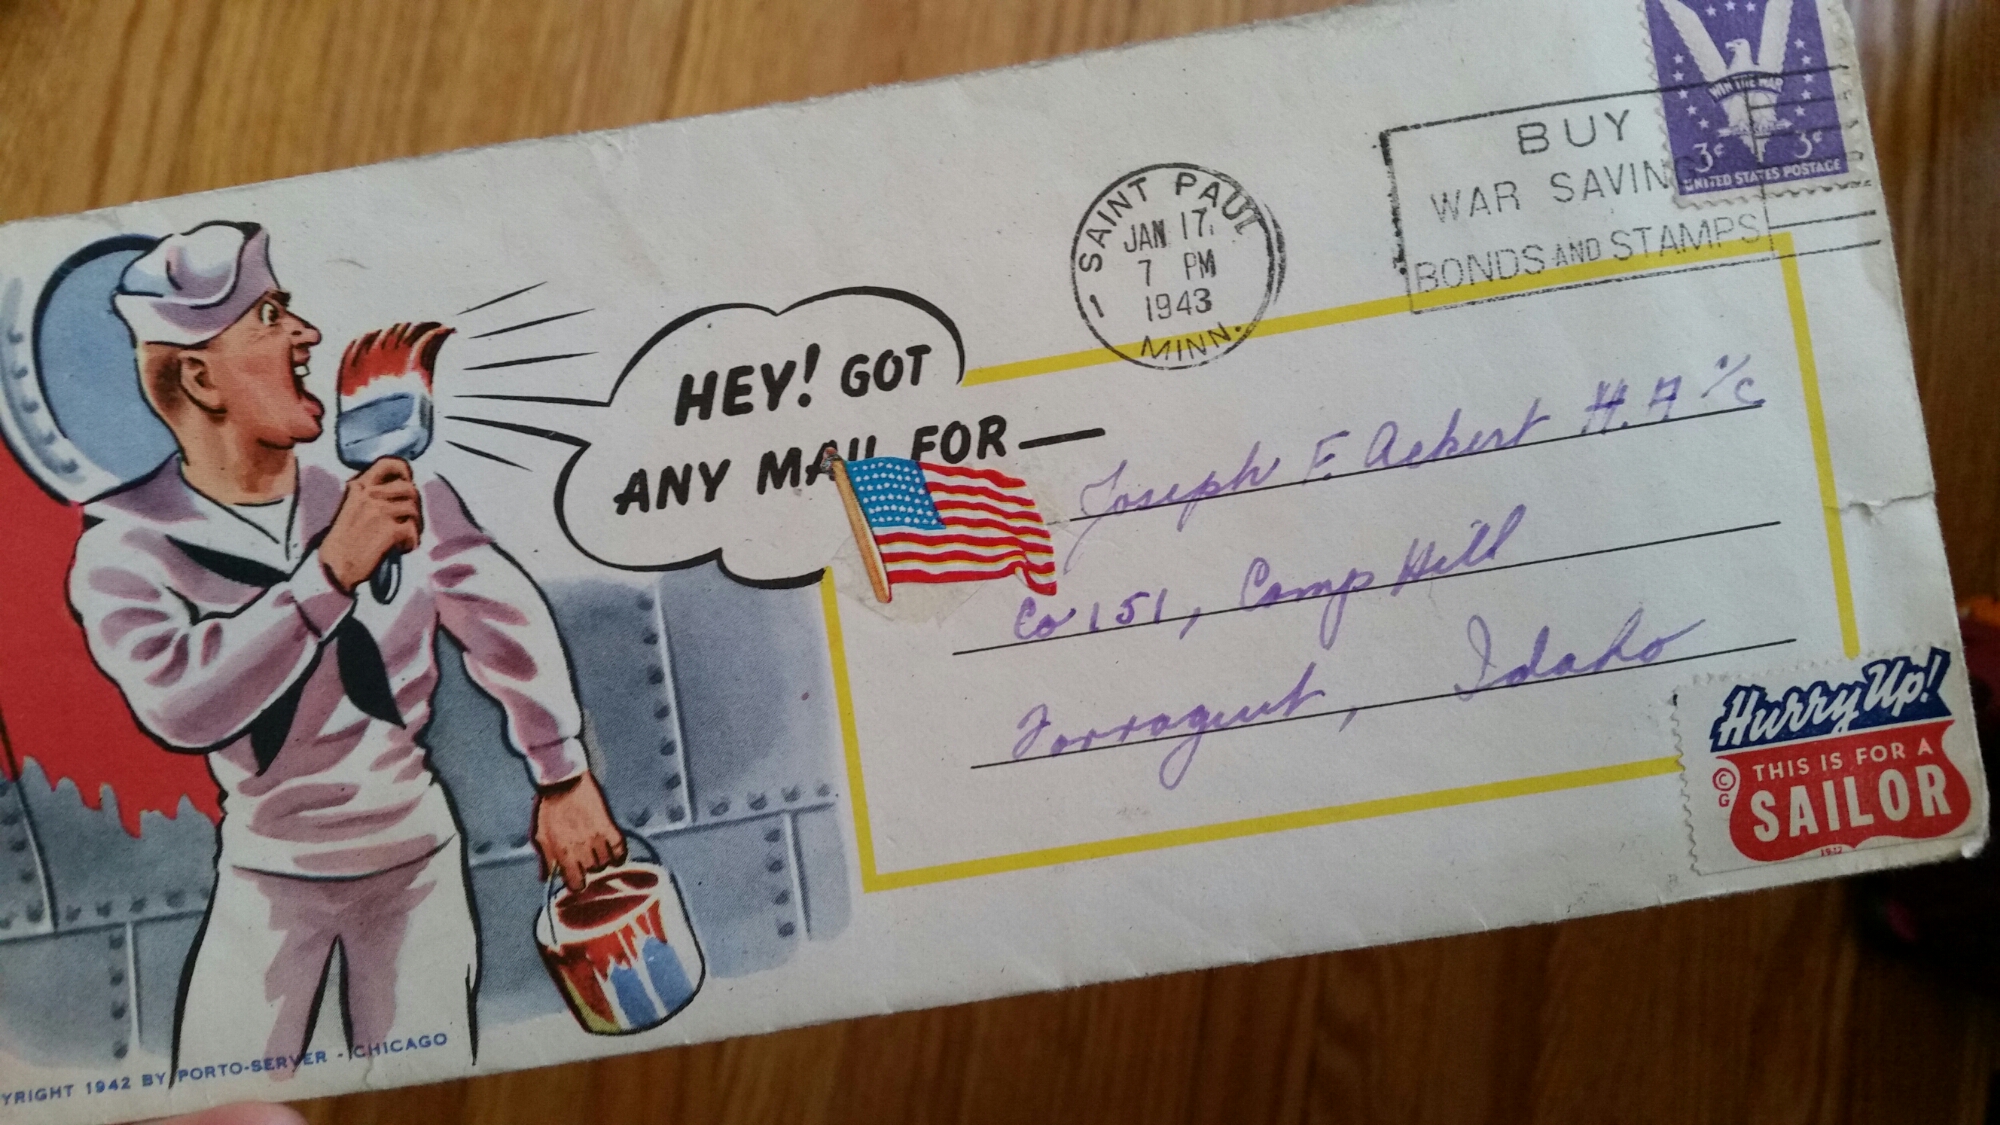 HEY! GOT
ANY MAIL FOR—
SAINT PAUL
JAN 17
7 PM
1943
1 MINN.
BUY
WAR SAVIN
BONDS AND STAMPS
WIN THE WAR
3¢ 3¢
UNITED STATES POSTAGE
Joseph F. Ackert H.A 2/c
Co 151, Camp Hill
Farragut, Idaho
Hurry Up!
THIS IS FOR A
SAILOR
© G
1942
YRIGHT 1942 BY PORTO-SERVER - CHICAGO